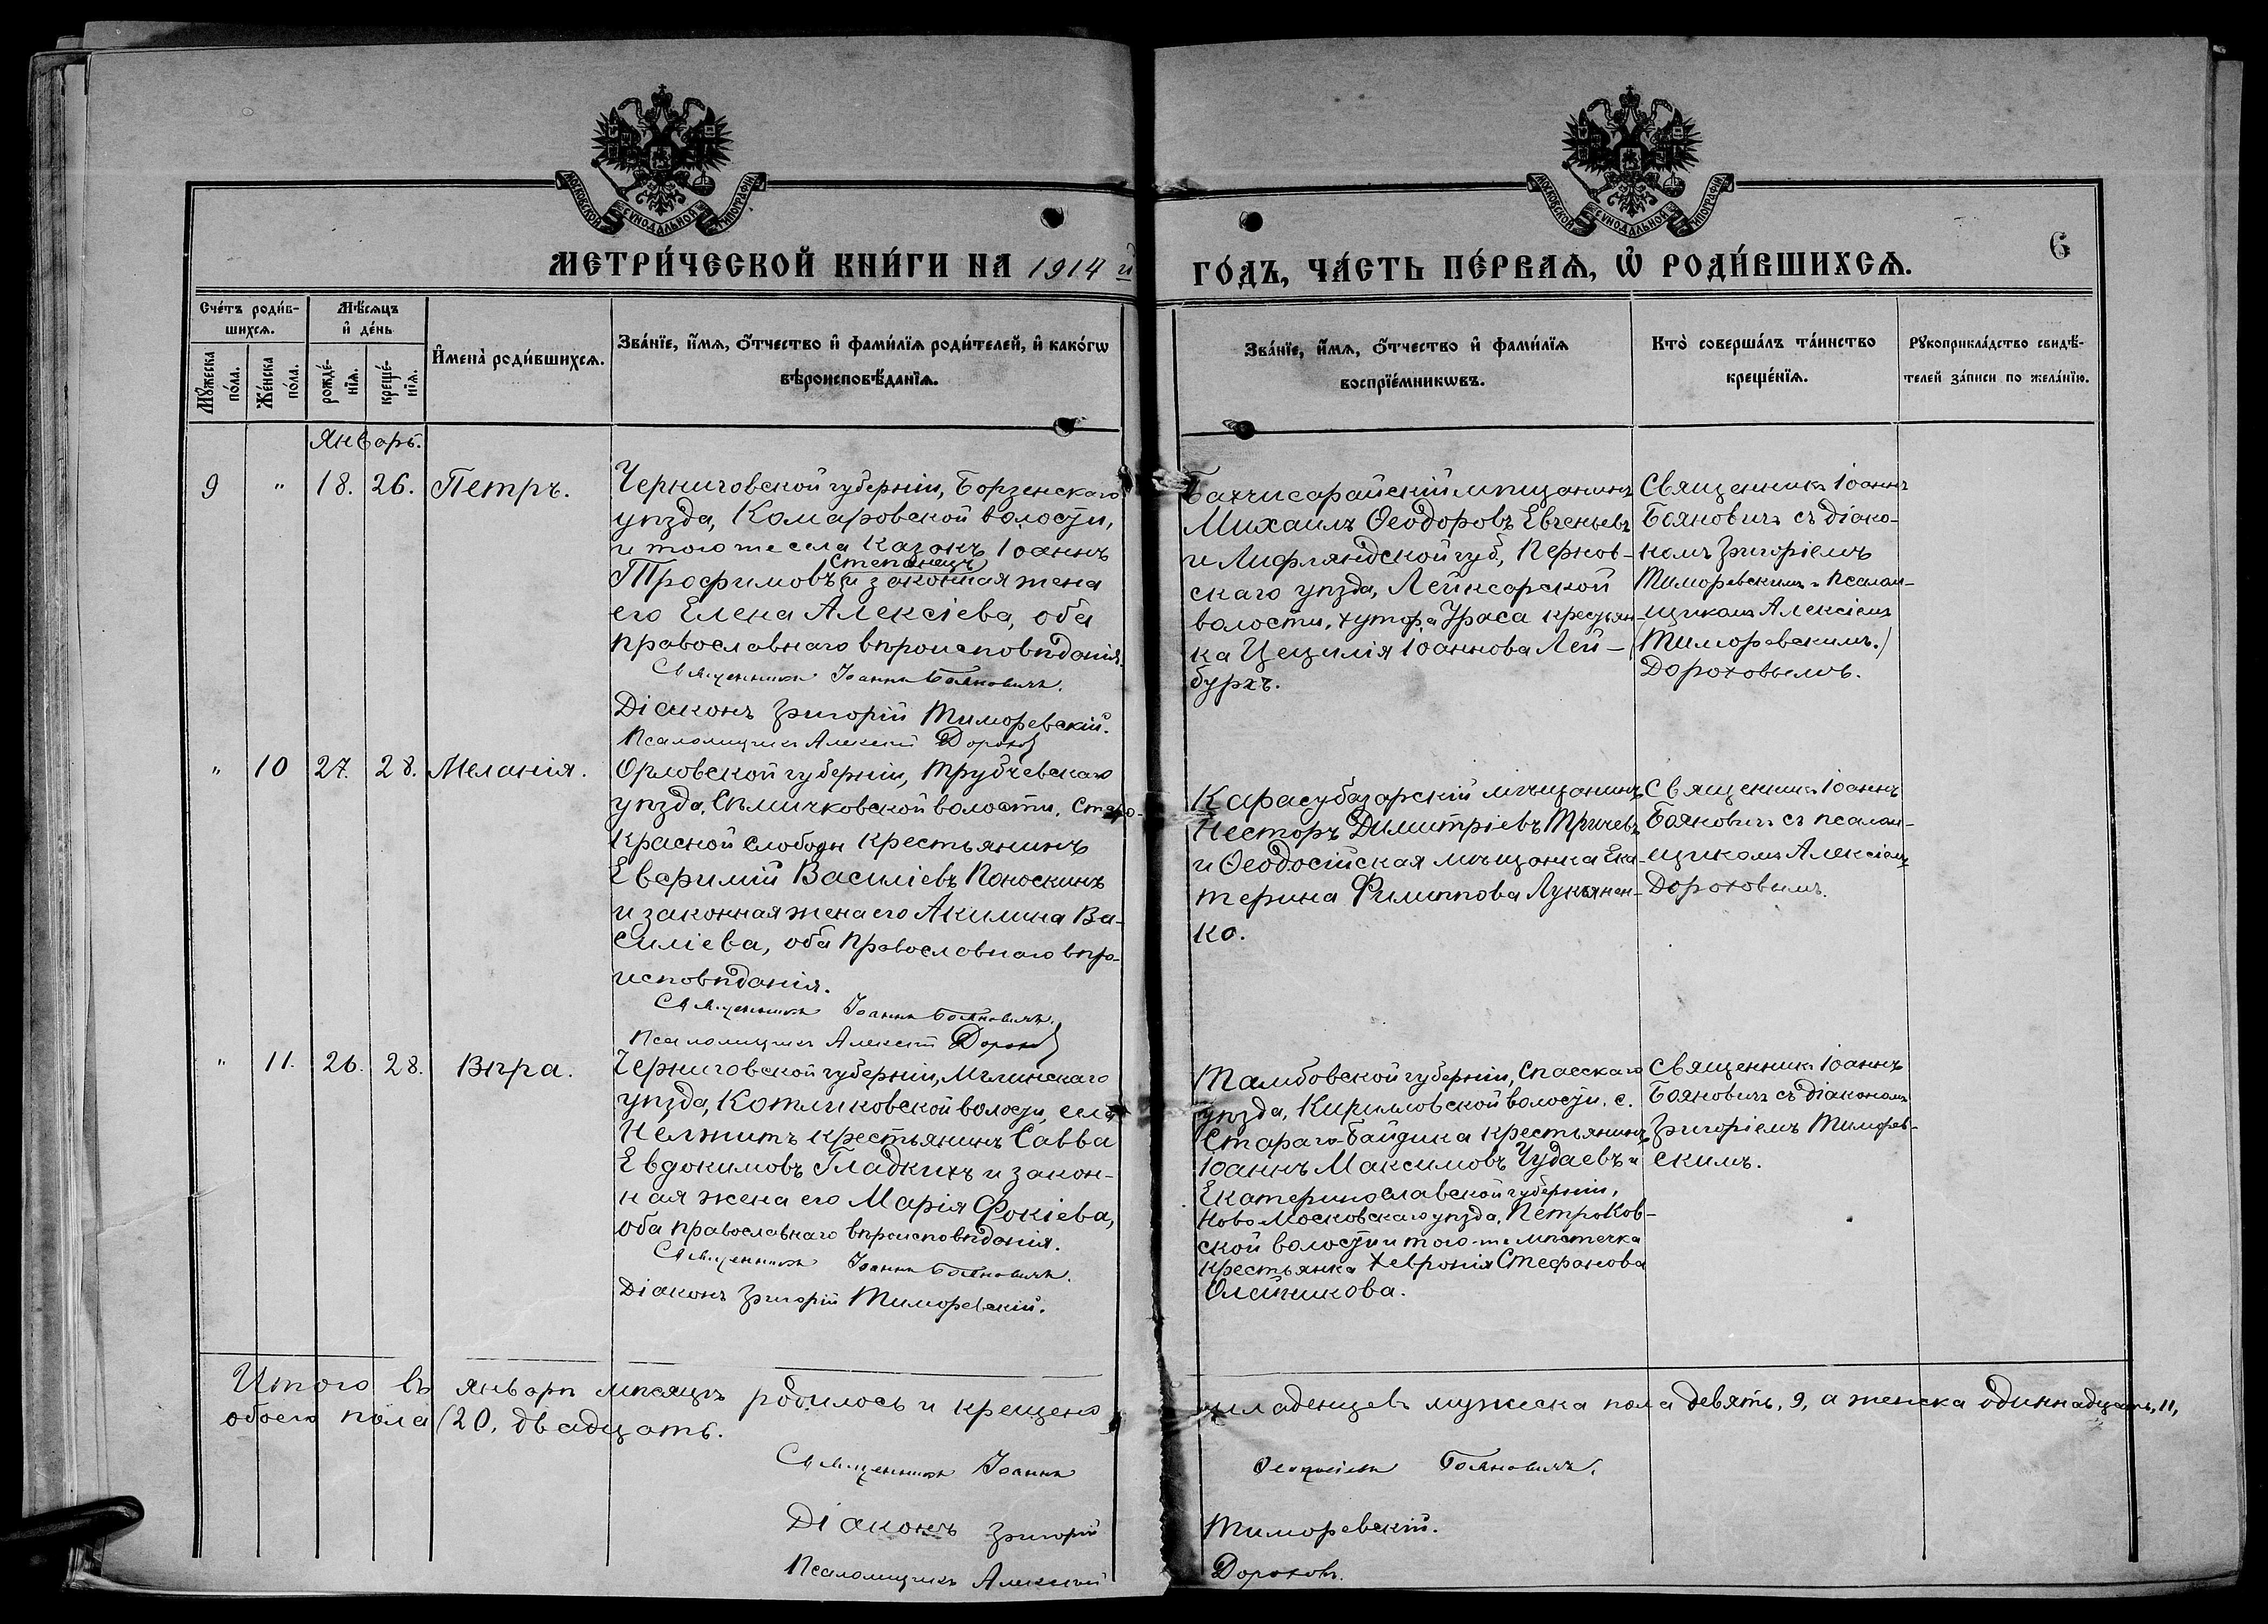 МОСКОВСКОЙ СѴНОДАЛЬНОЙ ТИПОГРАФІИ
МОСКОВСКОЙ СѴНОДАЛЬНОЙ ТИПОГРАФІИ
МЕТРИ́ЧЕСКОЙ КНИ́ГИ НА 1914 й
ГО́ДЪ, ЧА́СТЬ ПЕ́РВАѦ, Ѡ҆ РОДИ́ВШИХСѦ.
6
Сче́тъ роди́в-
шихсѧ.
Мꙋ́жеска по́ла.
Же́нска по́ла.
Мѣ́сѧцъ
и҆ де́нь
рожде́-
нїѧ.
креще́-
нїѧ.
И҆мена̀ роди́вшихсѧ.
Зва́нїе, и҆́мѧ, ѻ҆́тчество и҆ фами́лїѧ роди́телей, и҆ како́гѡ
вѣроисповѣ́данїѧ.
Зва́нїе, и҆́мѧ, ѻ҆́тчество и҆ фами́лїѧ
воспрїе́мникѡвъ.
Кто̀ соверша́лъ та́инство
креще́нїѧ.
Рꙋкоприкла́дство свидѣ́-
телей за́писи по жела́нїю.
Январь.
9 " 18. 26. Петръ.
Черниговской губерніи, Борзенскаго
уѣзда, Комаровской волости,
и того же села казакъ Іоаннъ
Степанецъ
Трофимовъ и законная жена
его Елена Алексіева, оба
православнаго вѣроисповѣданія.
Священникъ Іоаннъ Бояновичъ.
Діаконъ Григорій Тиморевскій.
Псаломщикъ Алексій Дорохов
Бахчисарайскій мѣщанинъ
Михаилъ Ѳеодоровъ Евгеньевъ
и Лифляндской губ, Пернов-
скаго уѣзда, Лейксарской
волости, хутораУраса крестьян-
ка Цецилія Іоаннова Лей-
бурхъ.
Священникъ Іоаннъ
Бояновичъ съ діако-
номъ Григоріемъ
Тиморевскимъ и псалом-
щикомъ Алексіемъ
(Тиморевскимъ.)
Дороховымъ.
" 10 27. 28. Меланія.
Орловской губерніи, Трубчевскаго
уѣзда, Сѣмичковской волости, Старо-
Красной слободы крестьянинъ
Евфимій Василіевъ Поноскинъ
и законная жена его Акилина Ва-
силіева, оба православнаго вѣро-
исповѣданія.
Священникъ Іоаннъ Бояновичъ.
Псаломщикъ Алексій Дорохов
Карасубазарскій мѣщанинъ
Несторъ Димитріевъ Тричевъ
и Ѳеодосійская мѣщанка Ека-
терина Филиппова Лукьянен-
ко.
Священникъ Іоаннъ
Бояновичъ съ псалом-
щикомъ Алексіемъ
Дороховымъ.
" 11. 26. 28. Вѣра.
Черниговской губерніи, Мглинскаго
уѣзда, Котляковской волости, села
Нелжитъ крестьянинъ Савва
Евдокимовъ Гладкихъ и закон-
ная жена его Марія Фокіева,
оба православнаго вѣроисповѣданія.
Священникъ Іоаннъ Бояновичъ.
Діаконъ Григорій Тиморевскій.
Тамбовской губерніи, Спасскаго
уѣзда, Кирилловской волости, с.
Стараго-Байдика крестьянинъ
Іоаннъ Максимовъ Чудаевъ и
Екатеринославской губерніи,
Новомосковскаго уѣзда, Петроков-
ской волости и того-же мѣстечка
крестьянка Хевронія Стефанова
Олейникова.
Священникъ Іоаннъ
Бояновичъ съ діакономъ
Григоріемъ Тиморев-
скимъ.
Итого въ январѣ мѣсяцѣ родилось и крещено младенцевъ мужеска пола девять, 9, а женска одиннадцать, 11,
обоего пола (20, двадцать.
Священникъ Іоаннъ Бояновичъ.
Діаконъ Григорій Тиморевскій.
Псаломщикъ Алексій Дороховъ.